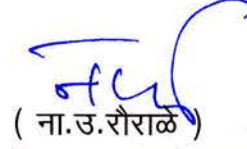 ( ना.उ.रौराळे )